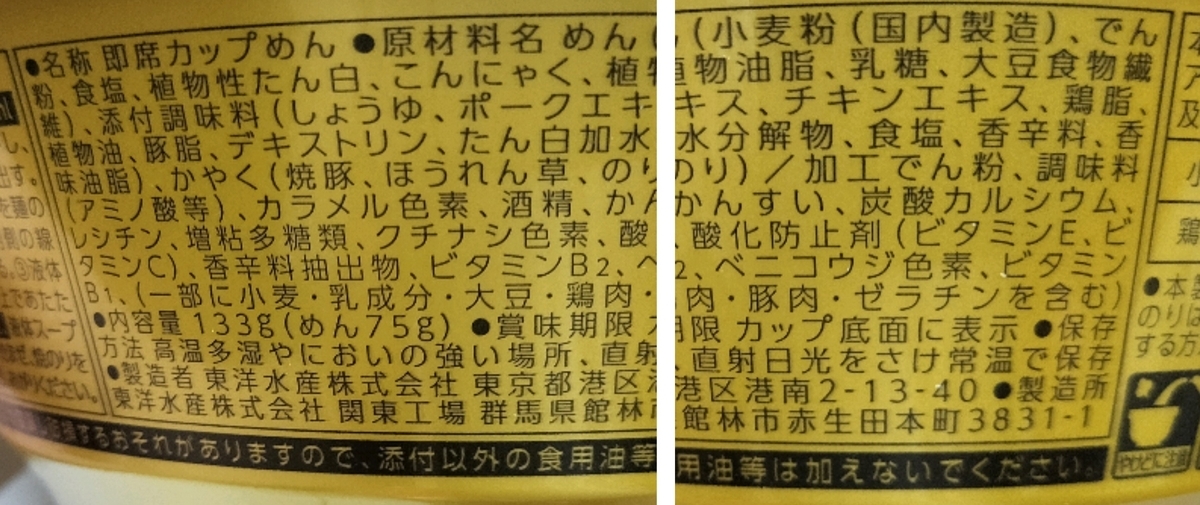 ●名称 即席カップめん ●原材料名 めん(小麦粉(国内製造)、でん
粉、食塩、植物性たん白、こんにゃく、植物油脂、乳糖、大豆食物繊
維)、添付調味料(しょうゆ、ポークエキス、チキンエキス、鶏脂、
植物油、豚脂、デキストリン、たん白加水分解物、食塩、香辛料、香
味油脂)、かやく(焼豚、ほうれん草、のり)/加工でん粉、調味料
(アミノ酸等)、カラメル色素、酒精、かんすい、炭酸カルシウム、
レシチン、増粘多糖類、クチナシ色素、酸化防止剤(ビタミンE、ビ
タミンC)、香辛料抽出物、ビタミンB2、ベニコウジ色素、ビタミン
B1、(一部に小麦・乳成分・大豆・鶏肉・豚肉・ゼラチンを含む)
●内容量 133g(めん75g) ●賞味期限 カップ底面に表示 ●保存
方法 高温多湿やにおいの強い場所、直射日光をさけ常温で保存
●製造者 東洋水産株式会社 東京都港区港南2-13-40 ●製造所
東洋水産株式会社 関東工場 群馬県館林市赤生田本町3831-1
するおそれがありますので、添付以外の食用油等は加えないでください。
やけどに注意